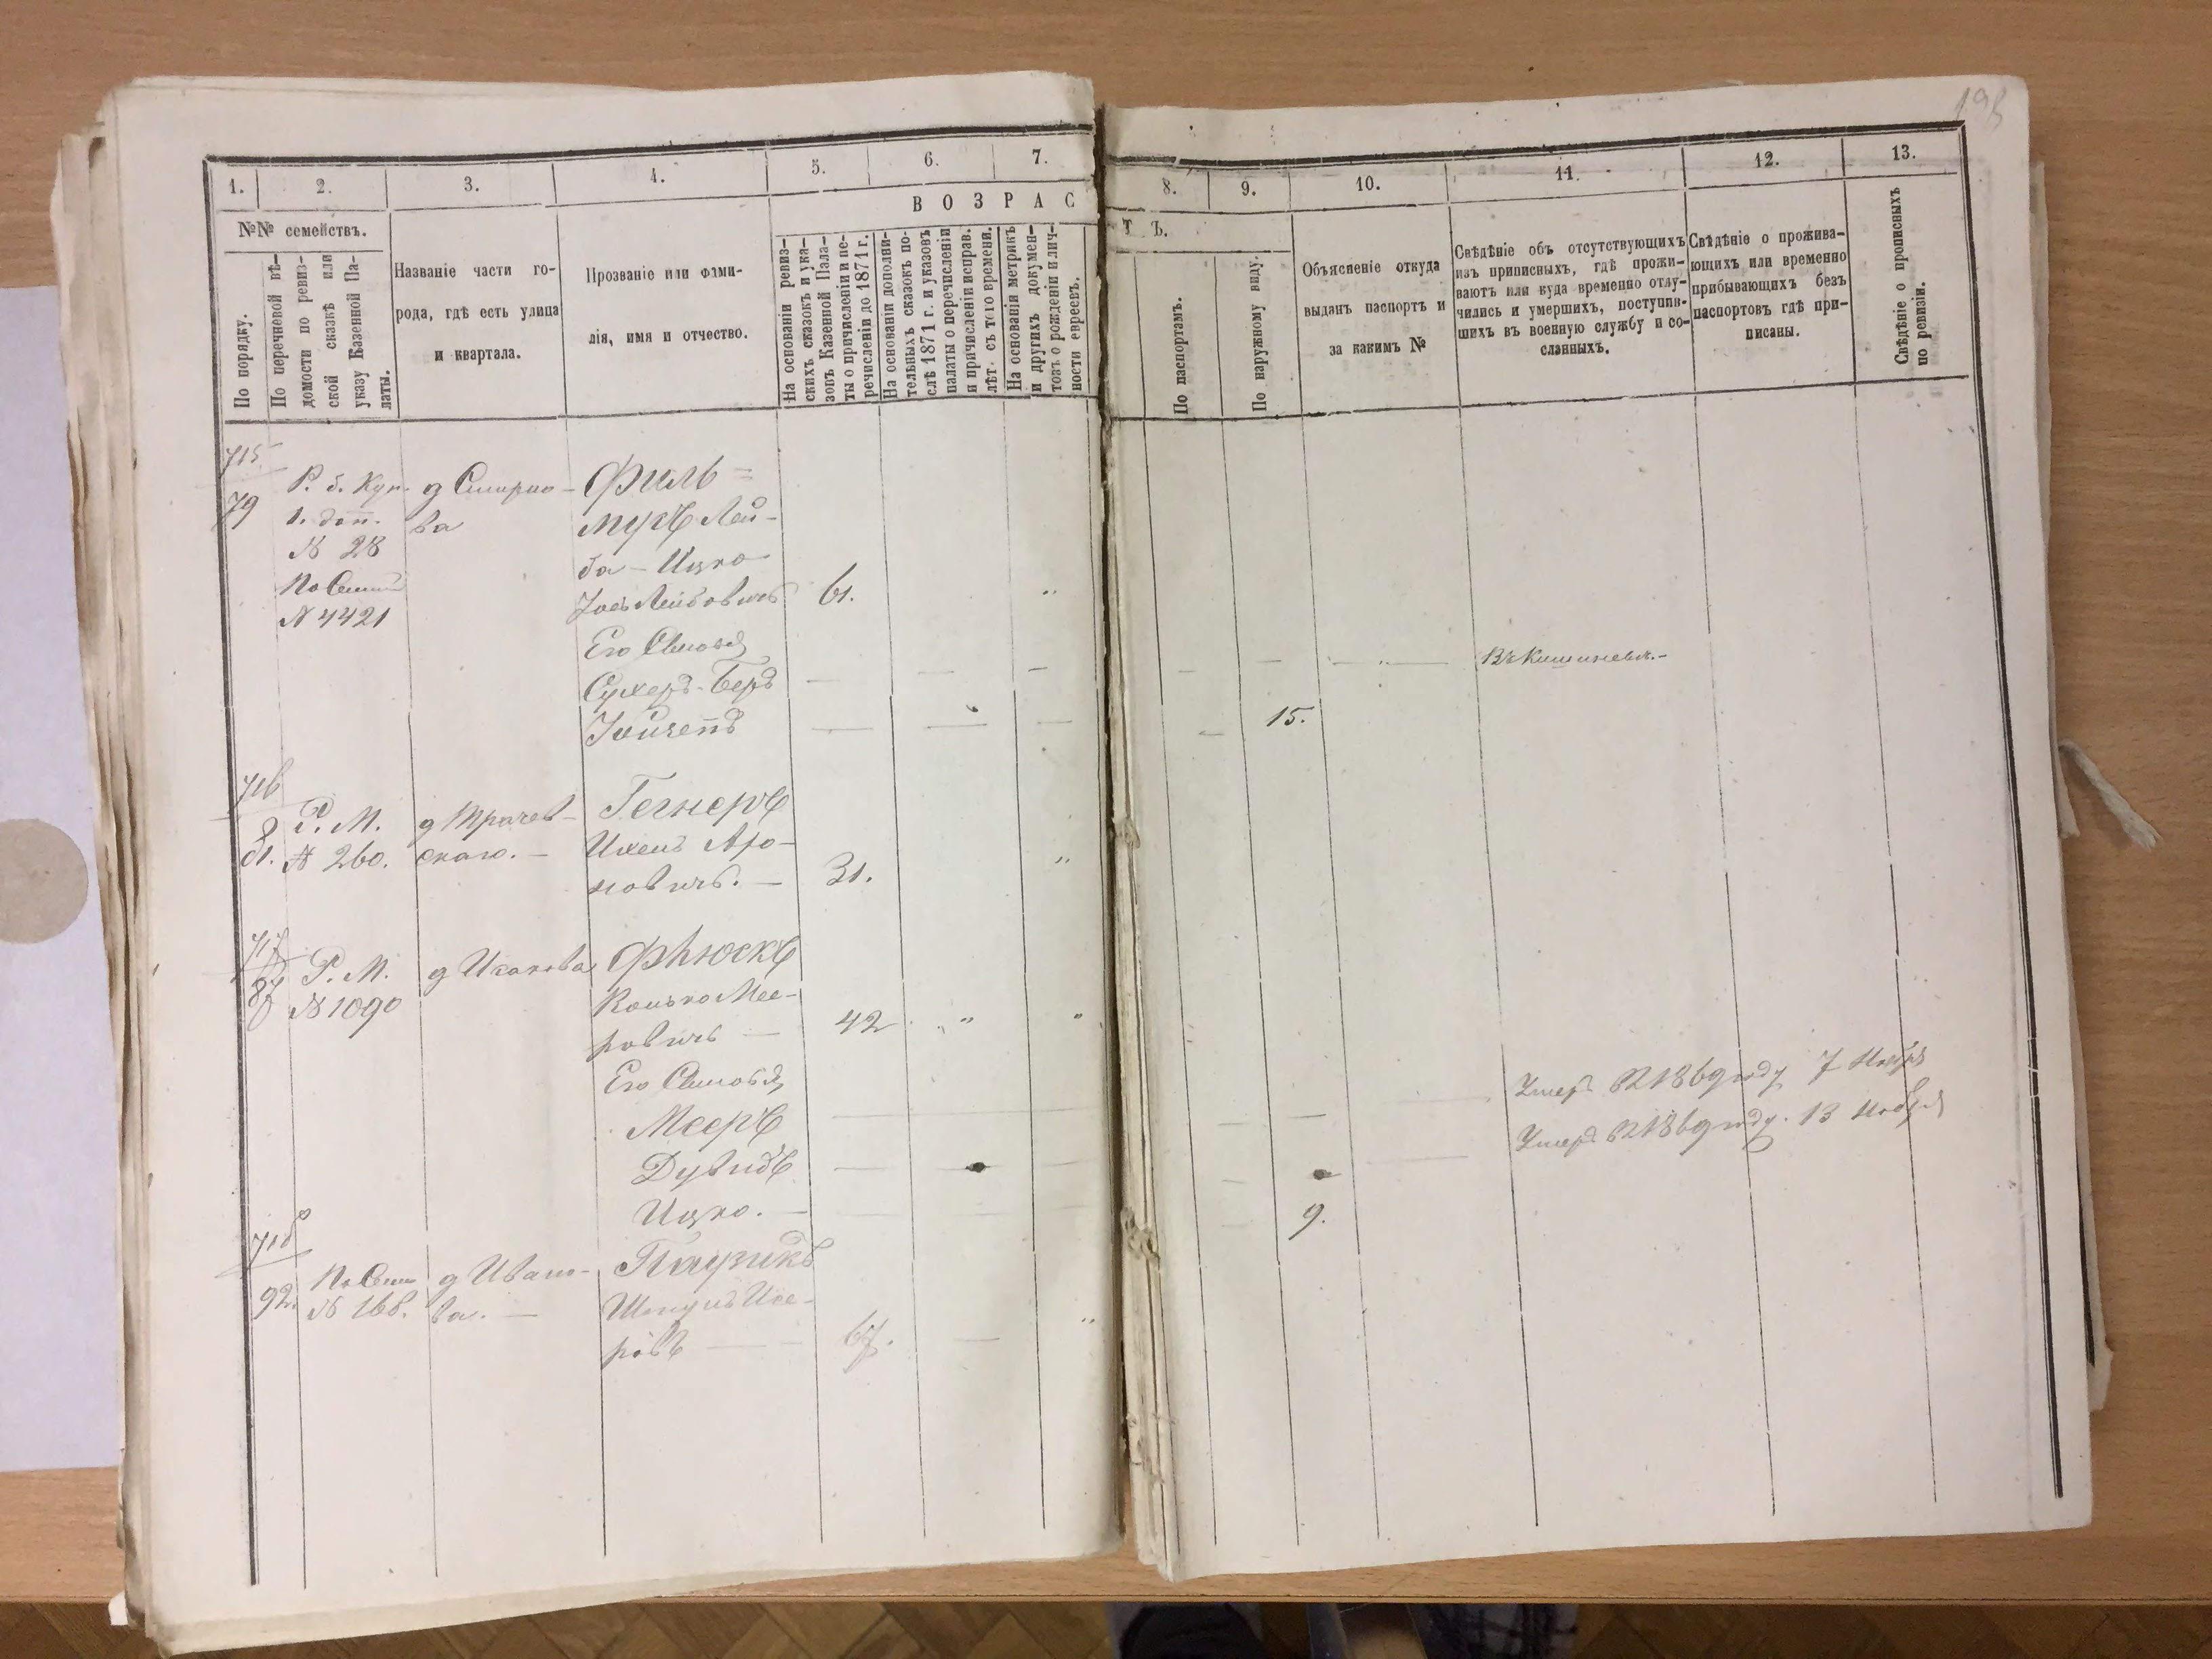 198
1.
2.
3.
4.
5.
6.
7.
8.
9.
10.
11.
12.
13.
№№ семействъ.
По порядку.
По перечневой вѣ-
домости по ревиз-
ской сказкѣ или
указу Казенной Па-
латы.
Названіе части го-
рода, гдѣ есть улица
и квартала.
Прозваніе или фами-
лія, имя и отчество.
ВОЗРАС
На основаніи ревиз-
скихъ сказокъ и ука-
зовъ Казенной Пала-
ты о причисленіи и пе-
речисленіи до 1871 г.
На основаніи дополни-
тельныхъ сказокъ по-
слѣ 1871 г. и указовъ
палаты о перечисленіи
и причисленіи исправ.
лѣт. съ того времени.
На основаніи метрикъ
и другихъ докумен-
товъ о рожденіи и лич-
ности евреевъ.
ТЪ.
По паспортамъ.
По наружному виду.
Объясненіе откуда
выданъ паспортъ и
за какимъ №
Свѣдѣніе объ отсутствующихъ
изъ приписныхъ, гдѣ прожи-
ваютъ или куда временно отлу-
чились и умершихъ, поступив-
шихъ въ военную службу и со-
сланныхъ.
Свѣдѣніе о прожива-
ющихъ или временно
прибывающихъ безъ
паспортовъ гдѣ при-
писаны.
Свѣдѣніе о прописныхъ
по ревизіи.
715
79
Р. б. Куп.
1. доп.
№ 28
№ 4421
д Смирно-
ва
Филь=
мукъ Лей-
ба-Ицко
Лейбовичъ 61. "
Его Сыновья
Сухеръ-Беръ — — — — — — " — Въ Кишиневѣ.-
— — — — 15.
716
81.
Р. М.
№ 260.
д Трачев-
скаго. —
Гегнеръ
Ихель Аро-
новичъ. — 31. "
717
87
Р. М.
№ 1090
д Исакова
Фнюскъ
Конько Мее-
ровичъ — 42 " "
Его Сыновья
Мееръ — — — Умеръ въ 1869 году 7 Ноябр
Дувидъ — — — — Умеръ въ 1869 году. 13 Ноября
Ицко. — — 9.
718
92.
№ 168.
д Ивано-
ва. —
Паузикъ
ровъ — 67. — "